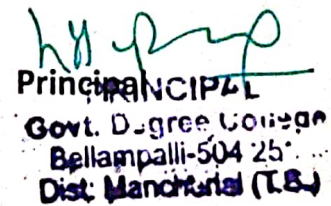 Principal
PRINCIPAL
Govt. Degree College
Bellampalli-504 25
Dist: Mancherial (T.S.)